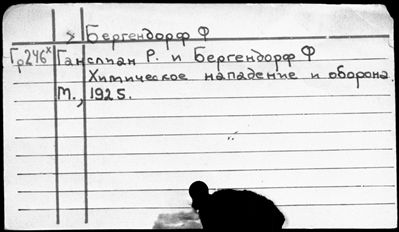 Бергендорф Ф
Гр246х Ганслиан Р. и Бергендорф Ф
Химическое нападение и оборона
М., 1925.